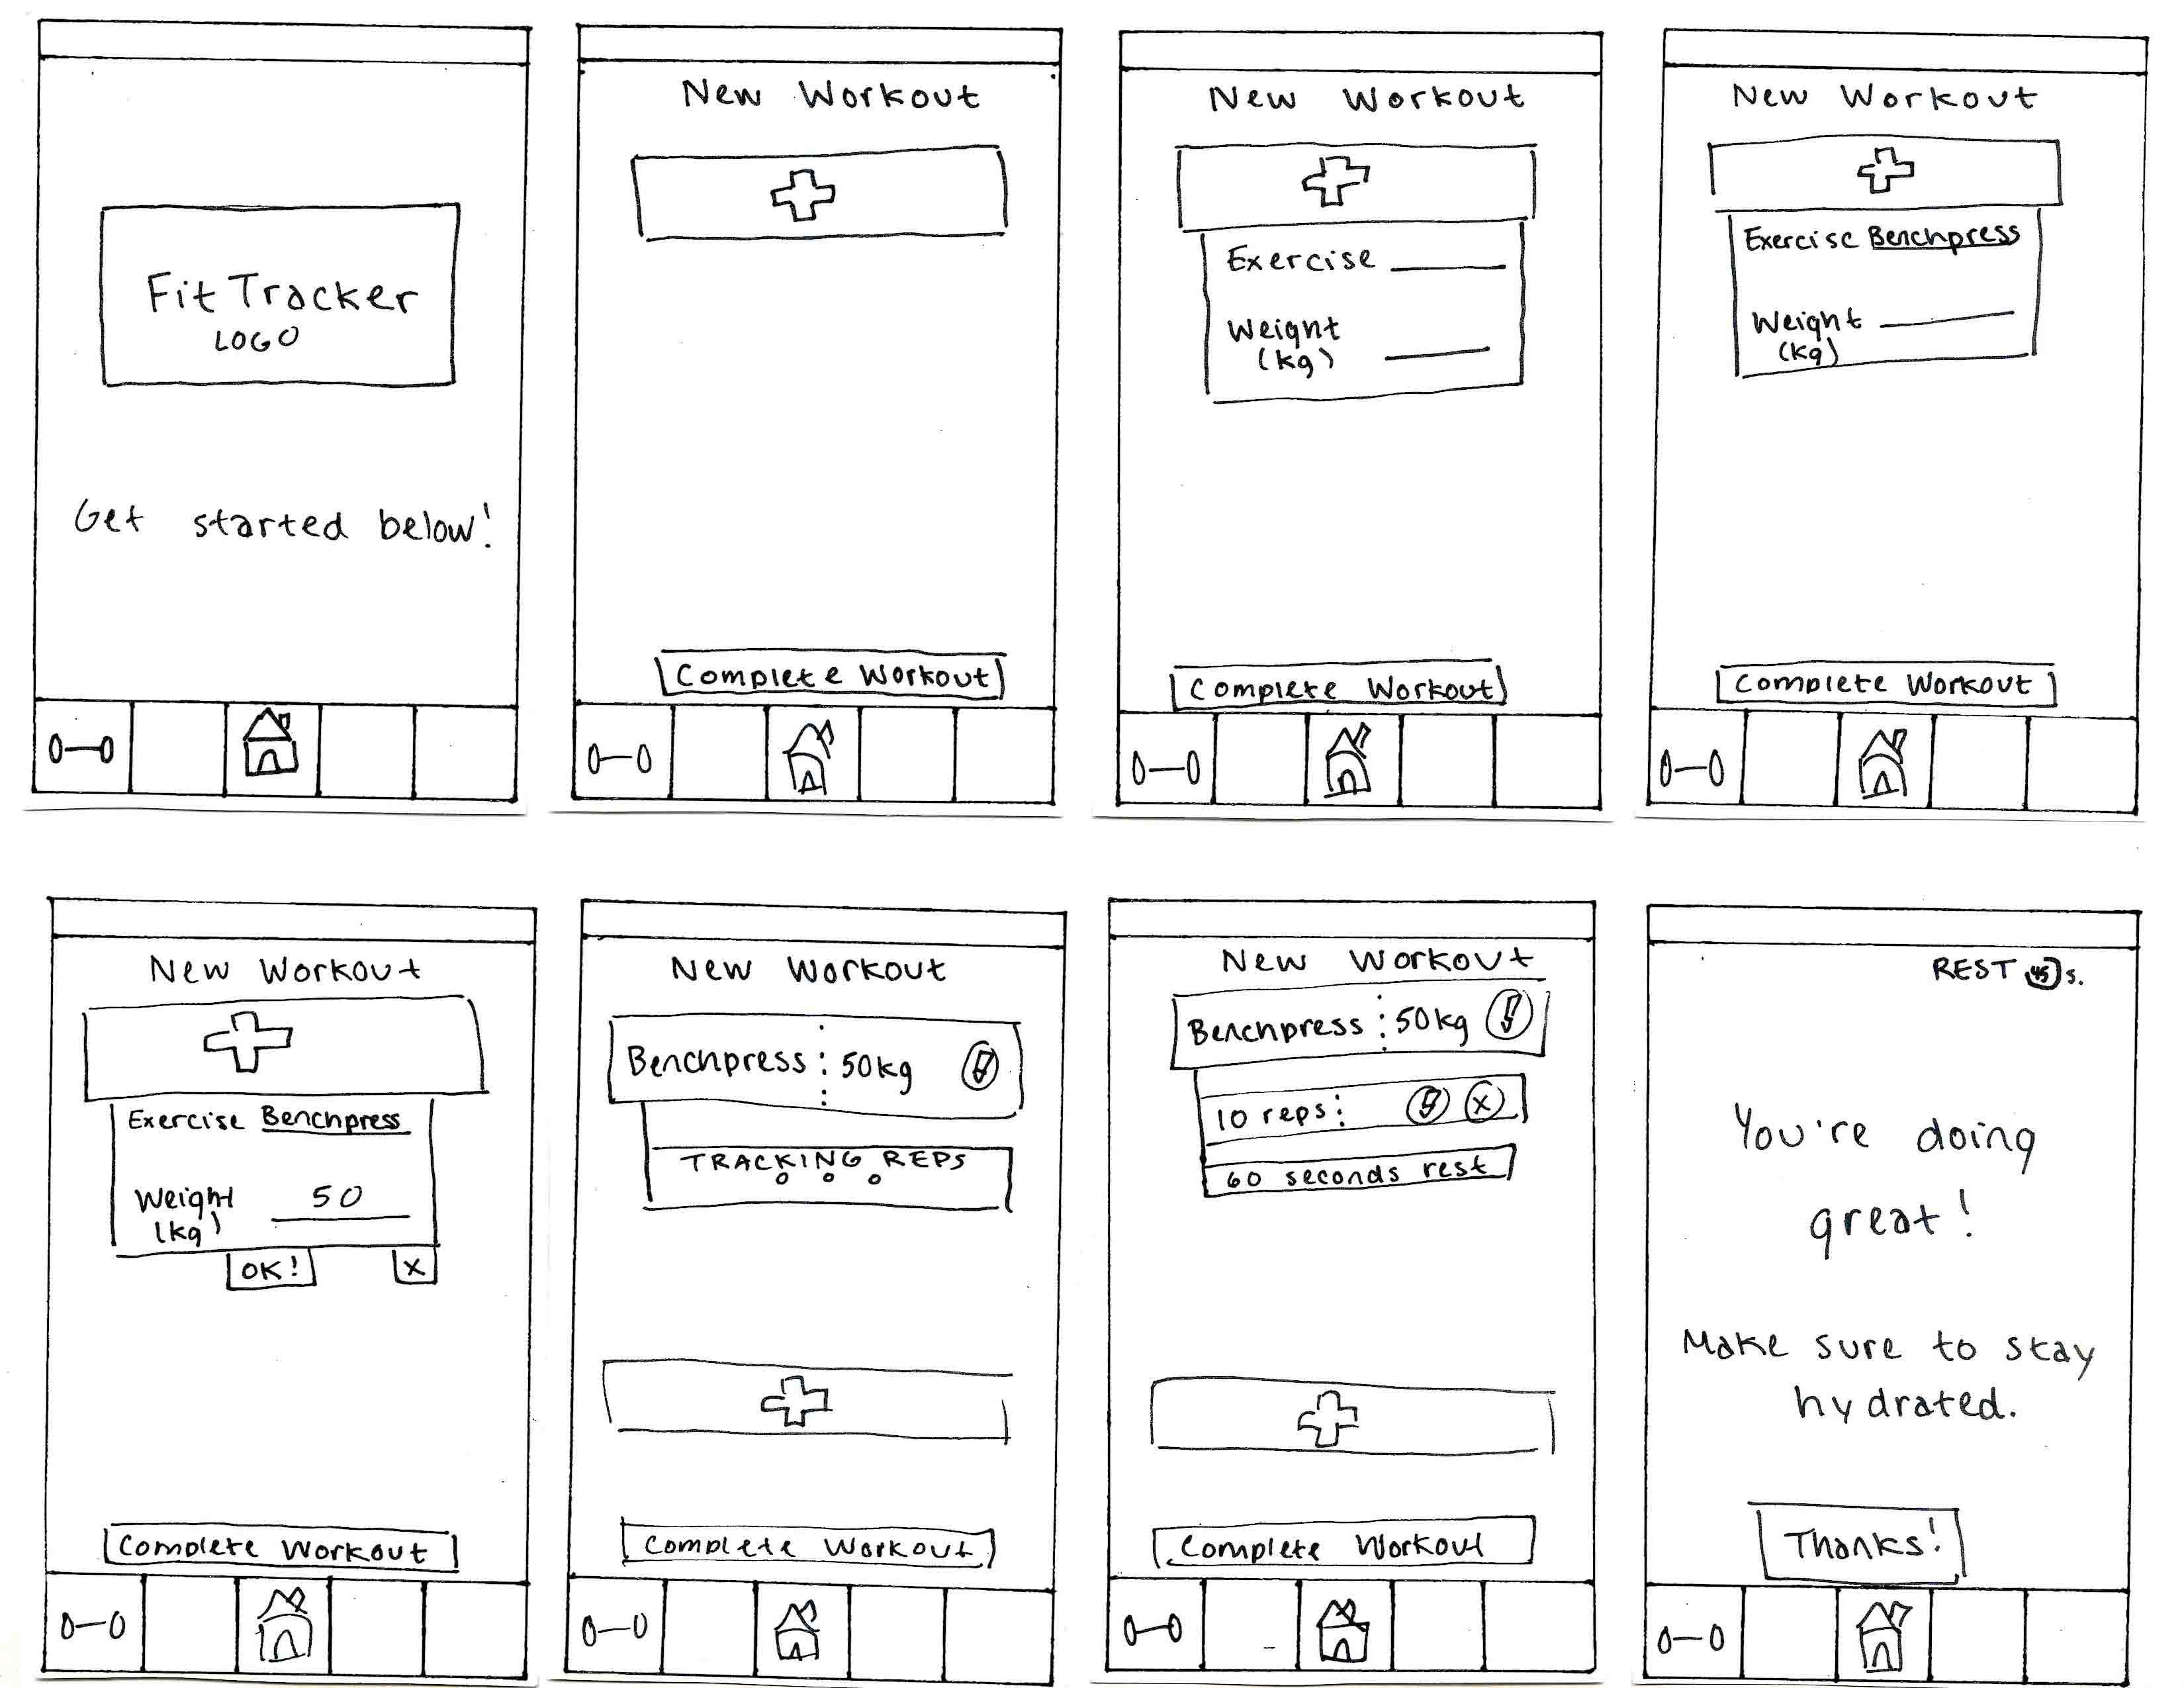 Fit Tracker
LOGO
Get started below!
New Workout
Complete Workout
New Workout
Exercise
Weight
(kg)
Complete Workout
New Workout
Exercise Benchpress
Weight
(kg)
Complete Workout
New Workout
Exercise Benchpress
Weight 50
(kg)
OK! X
Complete Workout
New Workout
Benchpress 50kg
TRACKING REPS
Complete Workout
New Workout
Benchpress 50kg
10 reps: X
60 seconds rest
Complete Workout
REST 45 s.
You're doing
great!
Make sure to stay
hydrated.
Thanks!